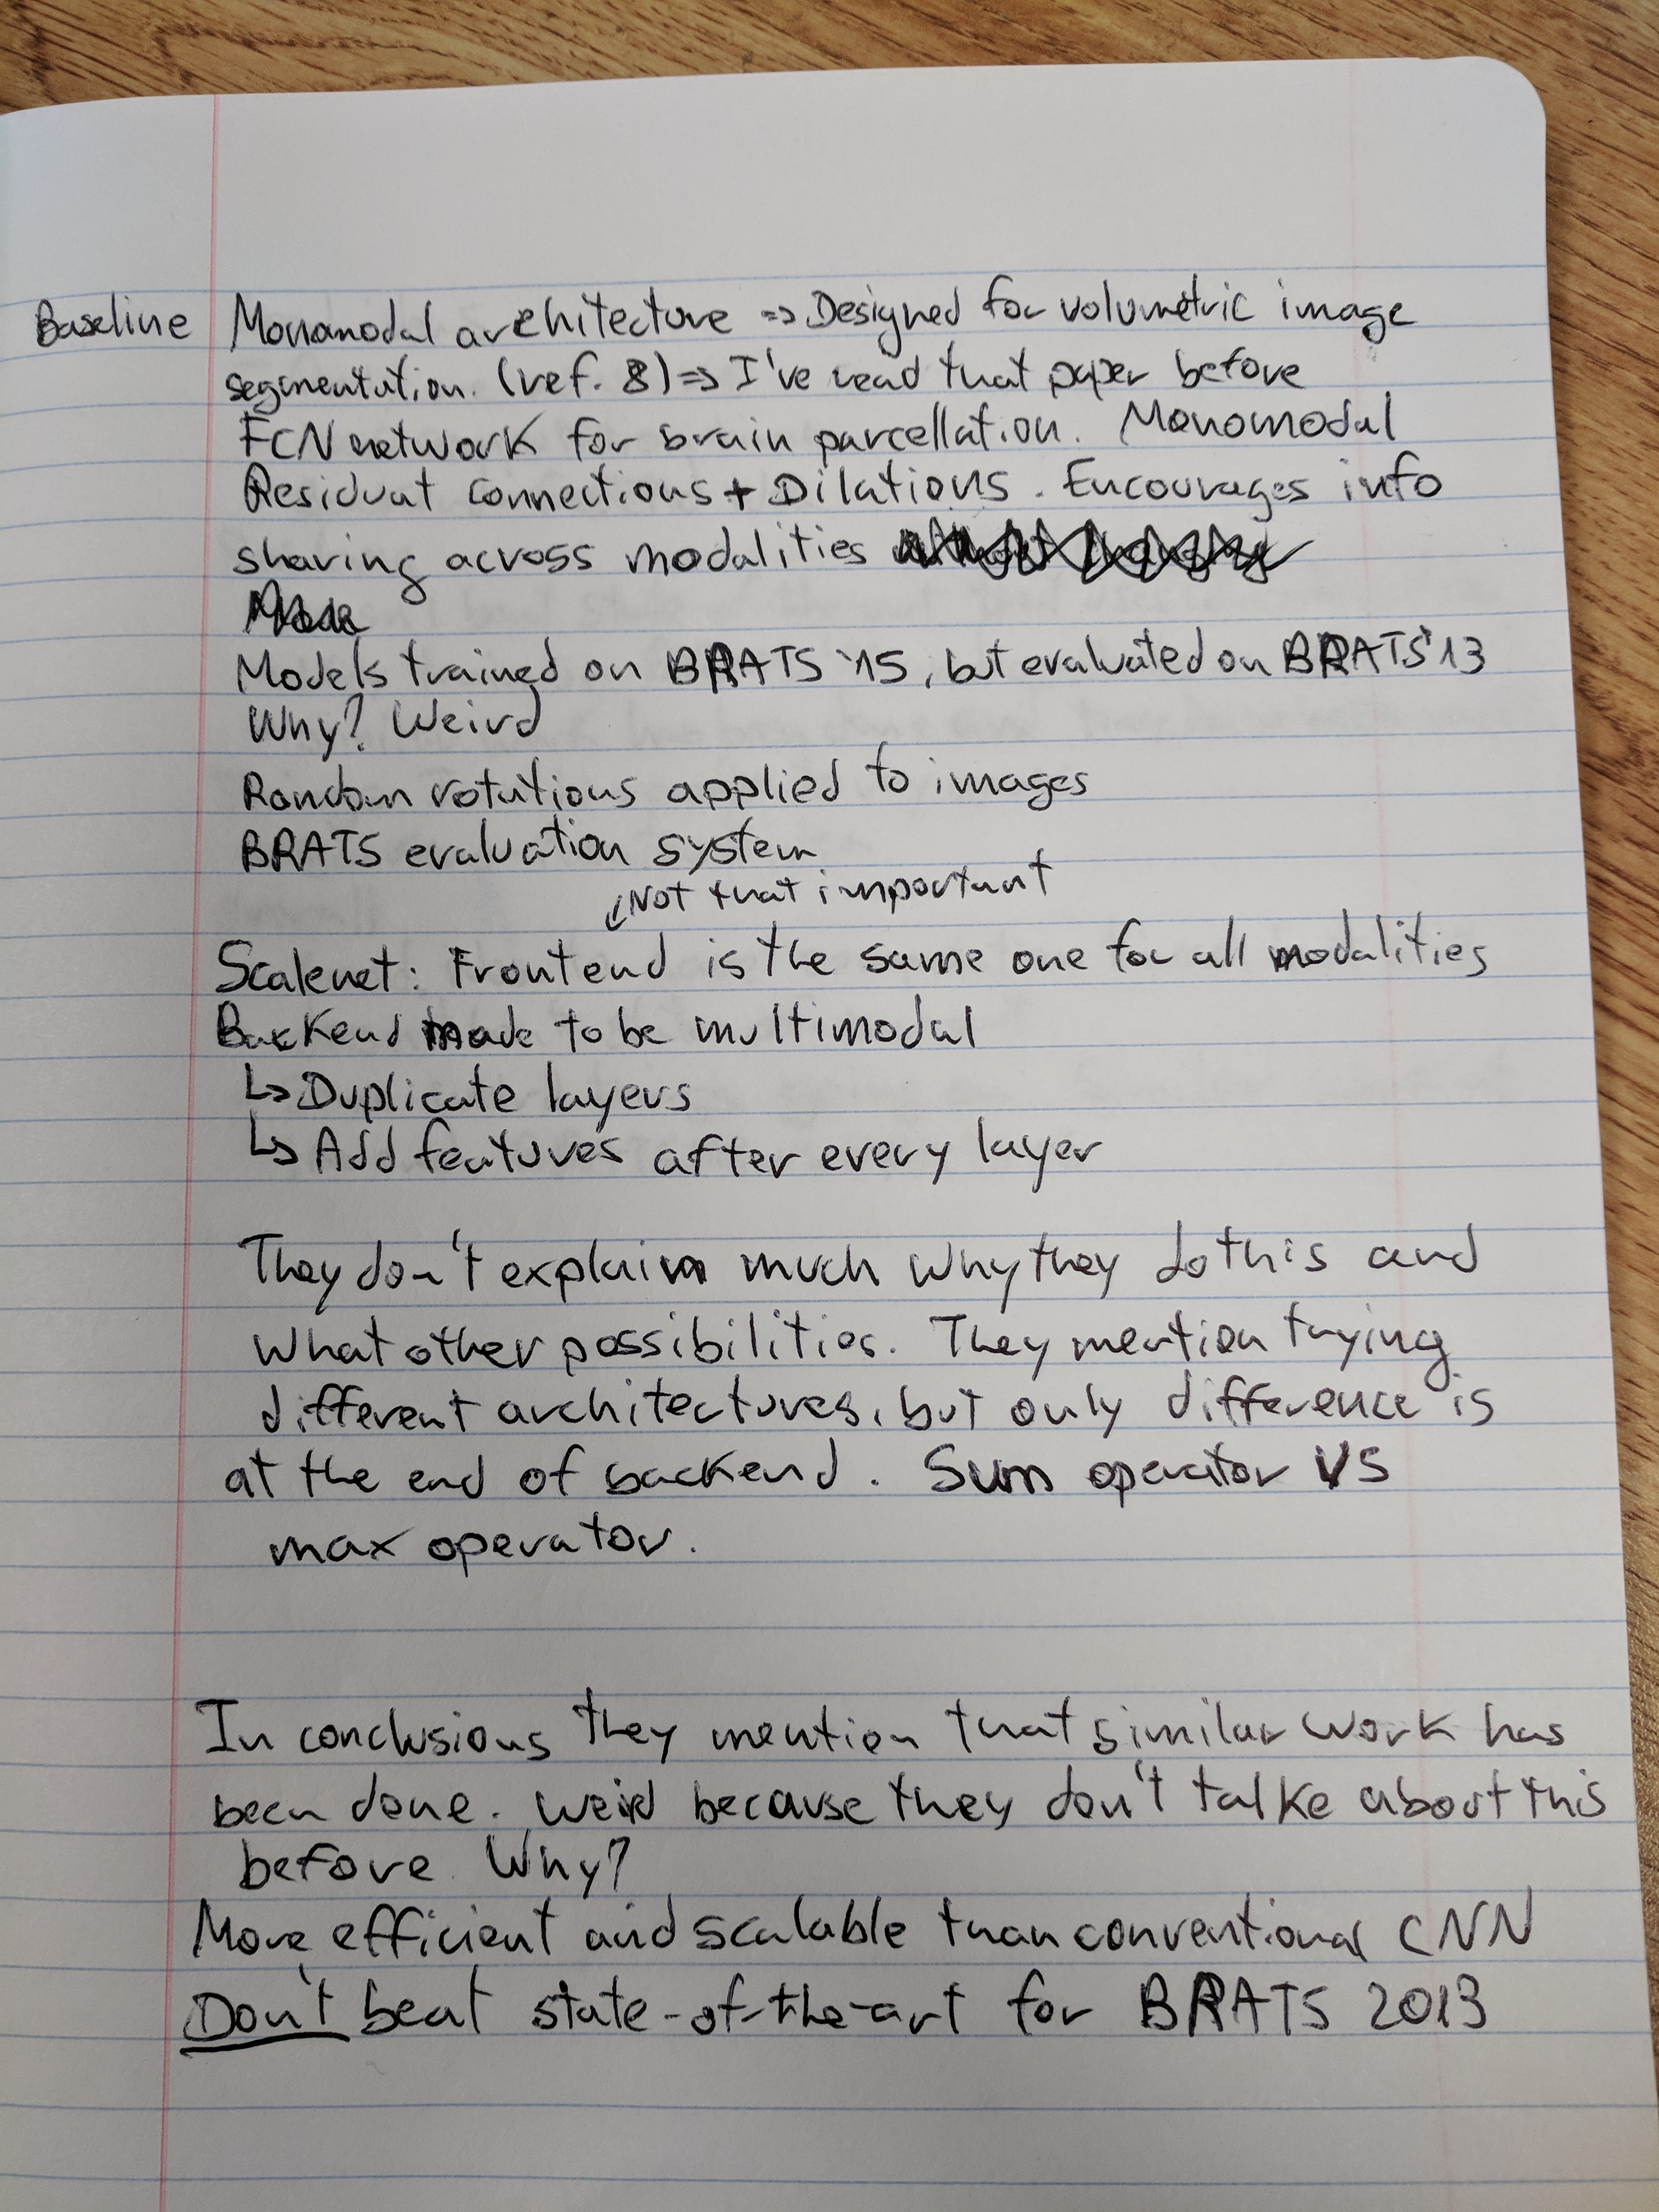 Baseline Monomodal architecture => Designed for volumetric image
segmentation. (ref. 8) => I've read that paper before
FCN network for brain parcellation. Monomodal
Residual connections + Dilations. Encourages info
sharing across modalities
Models trained on BRATS '15, but evaluated on BRATS '13
Why? Weird
Random rotations applied to images
BRATS evaluation system
↙Not that important
Scalenet: Frontend is the same one for all modalities
Backend made to be multimodal
↳ Duplicate layers
↳ Add features after every layer
They don't explain much why they do this and
what other possibilities. They mention trying
different architectures, but only difference is
at the end of backend. Sum operator VS
max operator.
In conclusions they mention that similar work has
been done. Weird because they don't talke about this
before. Why?
More efficient and scalable than conventional CNN
Don't beat state-of-the-art for BRATS 2013